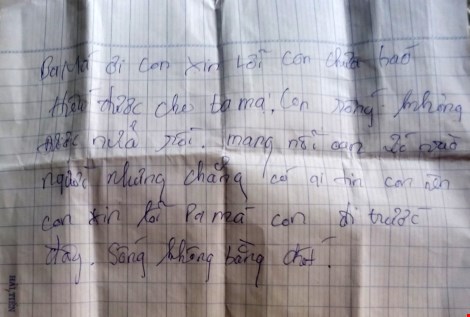 Ba Má ơi con xin lỗi con chưa báo
hiếu được cho ba má. Con sống không
được nữa rồi. mang nỗi oan
người nhưng chẳng có ai tin con nên
con xin lỗi Ba má con đi trước
đây. Sống không bằng chết.
HẢI TIẾN